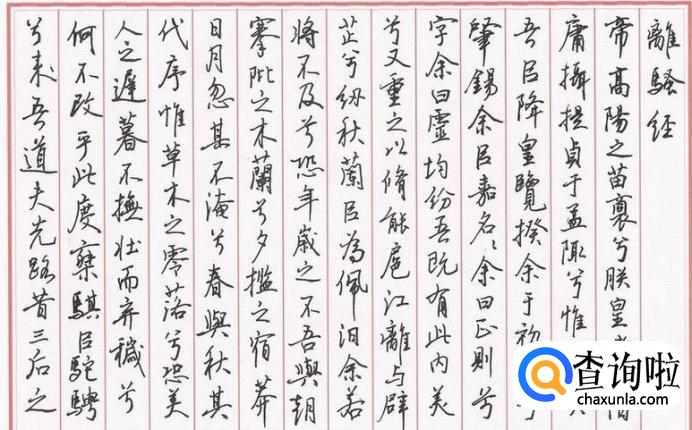 離騷经
帝高陽之苗裔兮朕皇
庸攝提貞于孟陬兮惟
吾㠯降皇覽揆余于初
肇錫余㠯嘉名〻余曰正則兮
字余曰靈均紛吾既有此内美
兮又重之以脩能扈江離与辟
芷兮紉秋蘭㠯為佩汩余若
將不及兮恐年歲之不吾與朝
搴阰之木蘭兮夕擥之宿莽
日月忽其不淹兮春與秋其
代序惟草木之零落兮恐美
人之遲暮不撫壯而弃穢兮
何不改乎此度椉騏㠯駝騁
兮来吾道夫先路昔三后之
查询啦
chaxunla.com